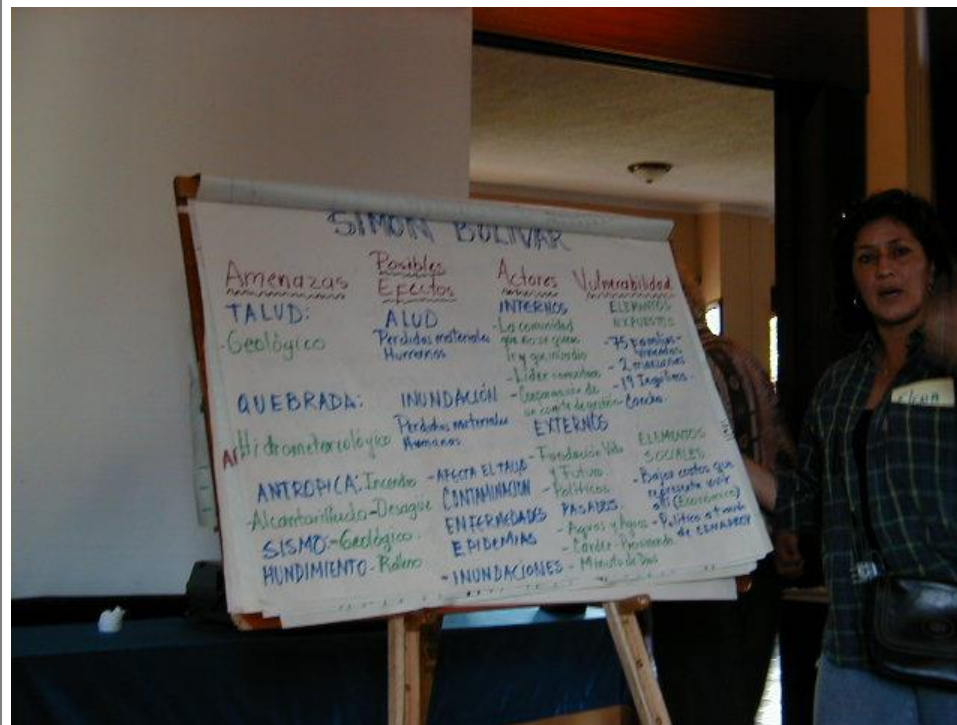 SIMON BOLIVAR
Amenazas
TALUD:
-Geológico
QUEBRADA:
Hidrometereológico
ANTROPICA: Incendio
-Alcantarillado-Desagüe
SISMO:-Geológico.
HUNDIMIENTO-Relleno
Posibles
Efectos
ALUD
Perdidas materiales
Humanos
INUNDACIÓN
Perdidas materiales
Humanas
-AFECTA EL TALUD
CONTAMINACION
ENFERMEDADES
EPIDEMIAS
-INUNDACIONES
Actores
INTERNOS
-La comunidad
que no se quiere
ir y que
-Lider comunitario
-Conformación de
un comite de gestión
EXTERNOS
-Fundación Vida
y Futuro.
-Políticos
PASADOS.
-Aguas y Aguas
-Carder-
-Minuto de Dios
Vulnerabilidad
ELEMENTOS
EXPUESTOS
-75 familias-
viviendas
-2
-19
-Cancha
ELEMENTOS
SOCIALES
-Bajos costos que
representa vivir
allí (Económico)
-Politico a través
de